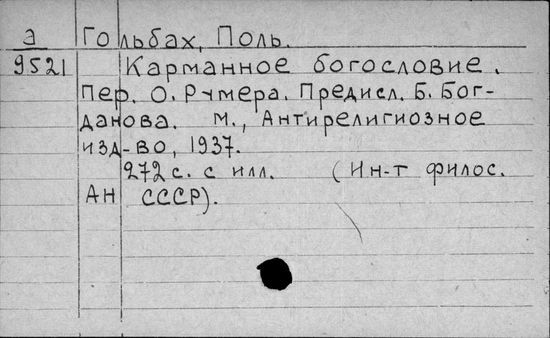 Э Гольбах, Поль.
9521 Карманное богословие.
Пер. О. Румера. Предисл. Б. Бог-
данова. М., Антирелигиозное
изд-во, 1937.
272 с. с илл. (Ин-т филос.
АН СССР).